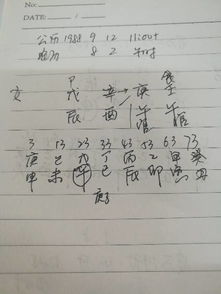 No.
DATE: / /
公历 1988 9 12
8 2 午时
戊 辛 → 庚
辰 酉 午 午
3 13 23 33 43 53 63 73
庚 己 戊 丁 丙 乙 甲 癸
申 未 午 巳 辰 卯 寅 丑